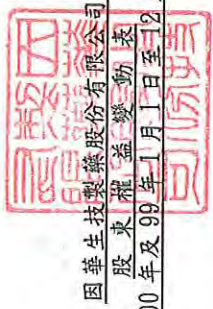 因華生技製藥股份有限公司
股東權益變動表
00年及99年1月1日至12